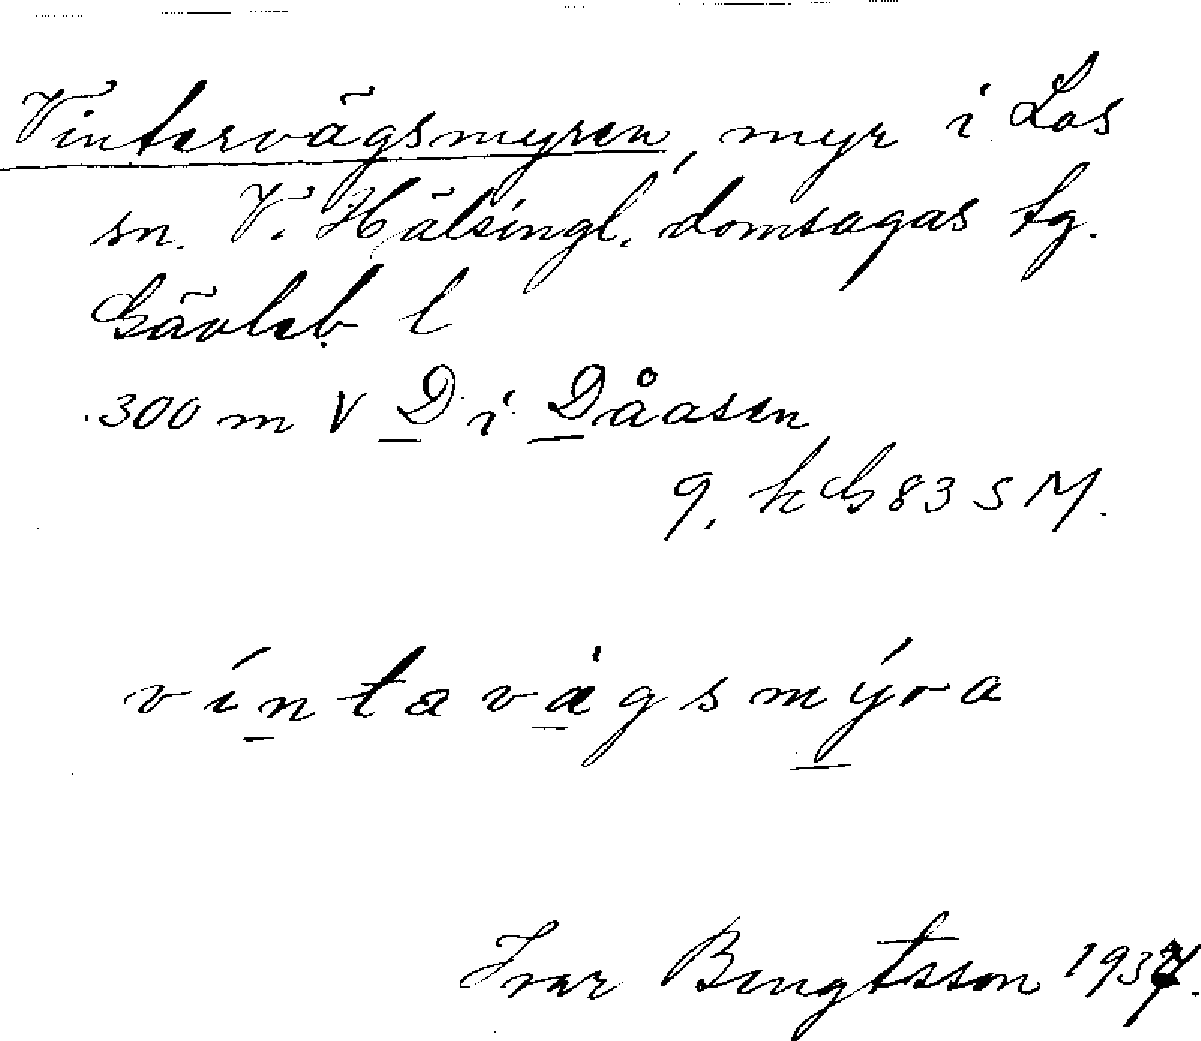 Vintervägsmyren, myr i Los
sn. V. Hälsingl. domsagas tg.
Gävleb. l
300 m V D i Dåasen
9. k G 83 S M.
víntavägsmýra
Ivar Bengtsson 1937.